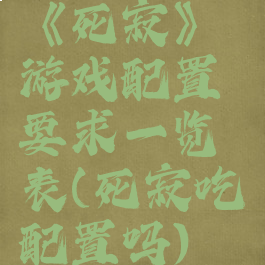 《死寂》
游戏配置
要求一览
表(死寂吃
配置吗)